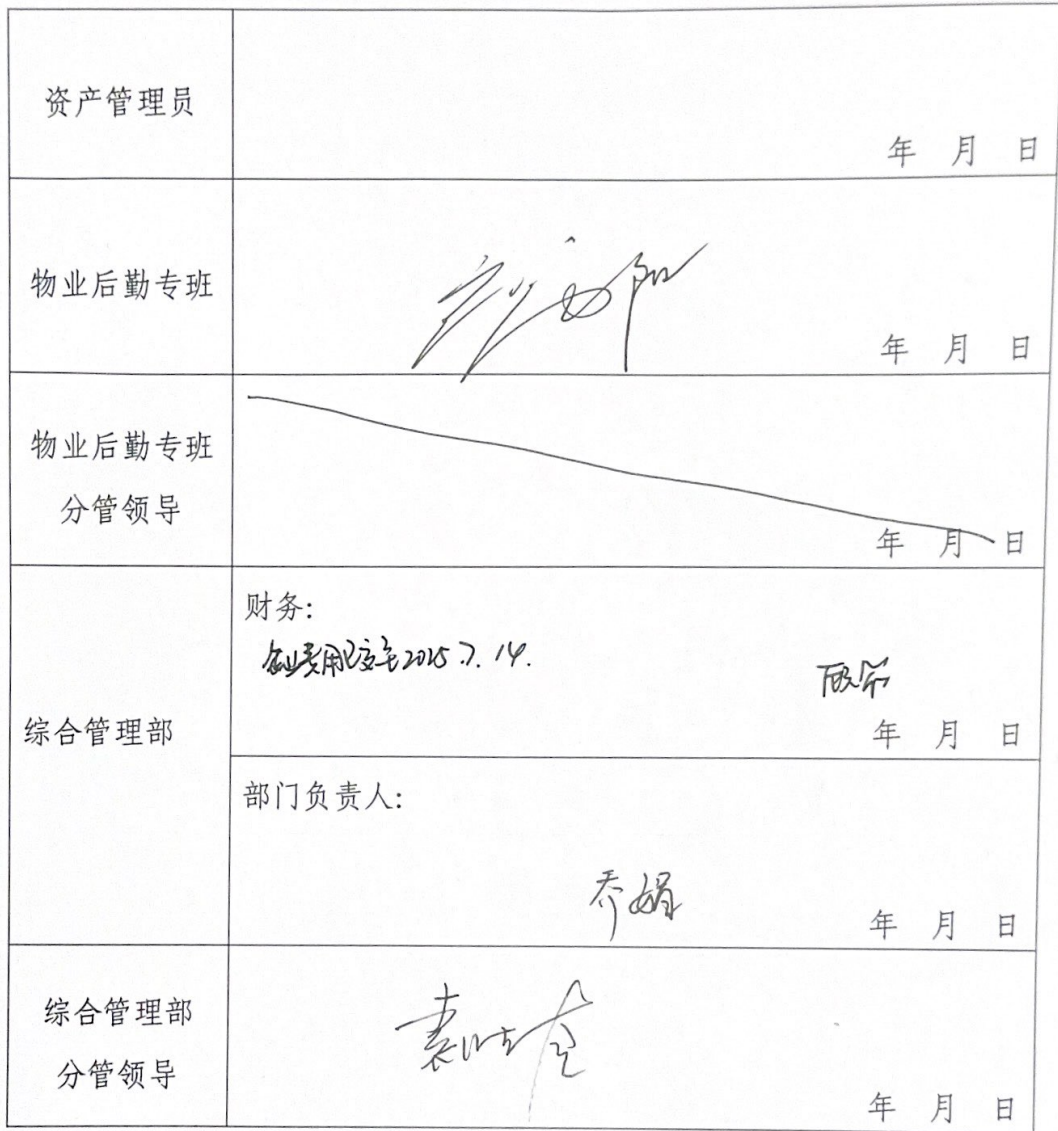 资产管理员
年 月 日
物业后勤专班
年 月 日
物业后勤专班
分管领导
年 月 日
综合管理部
财务:
费用已交至2025.7.14.
年 月 日
部门负责人:
乔娟
年 月 日
综合管理部
分管领导
年 月 日